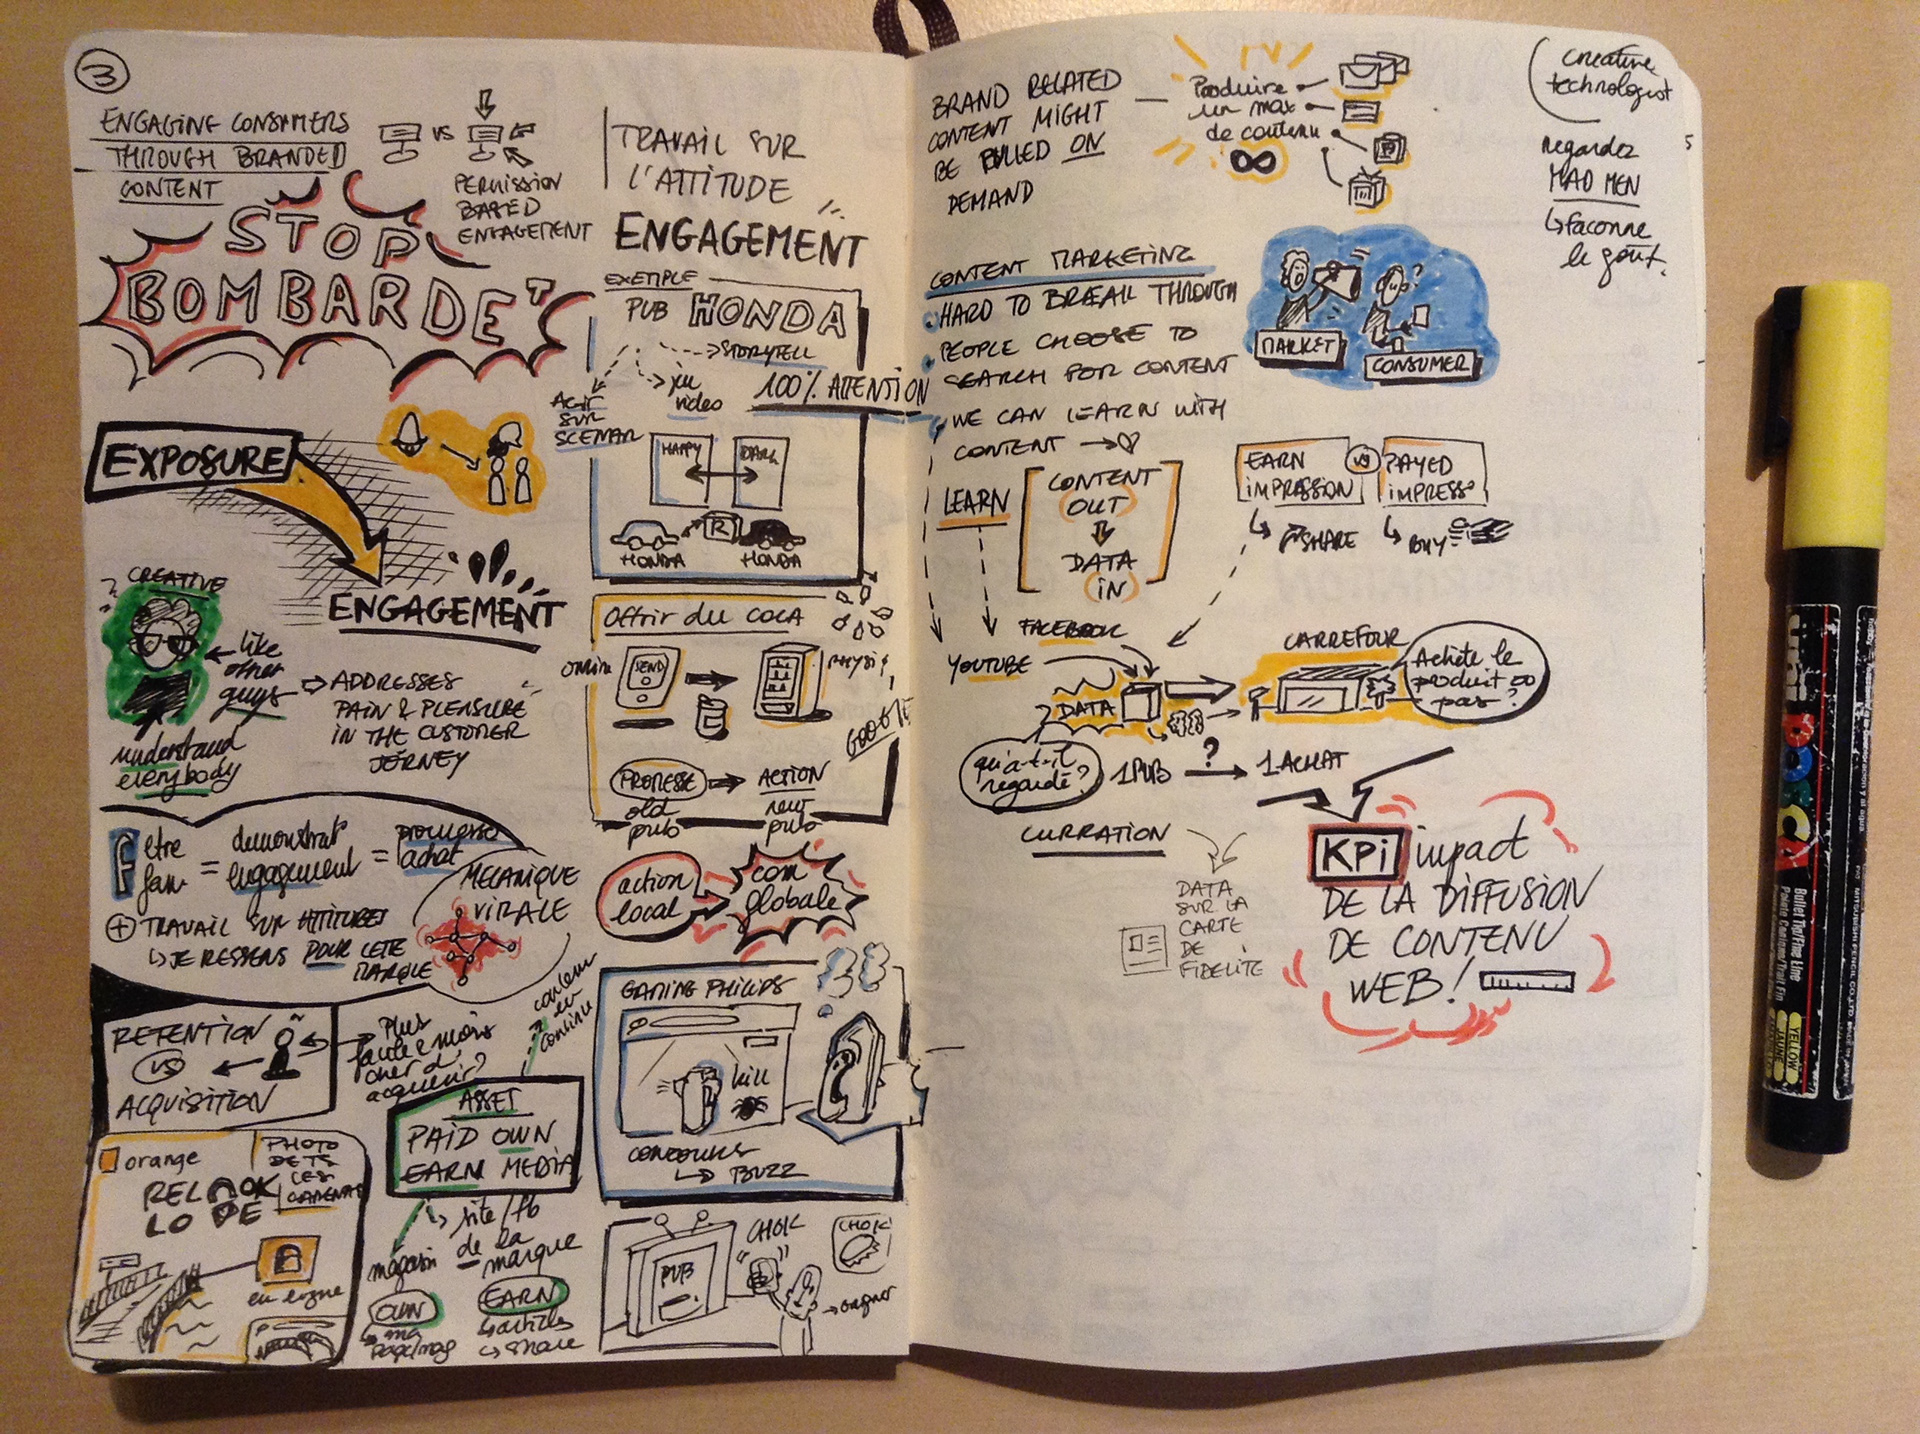 3
ENGAGING CONSUMERS
THROUGH BRANDED
CONTENT
VS
PERMISSION
BASED
ENGAGEMENT
STOP
BOMBARDE
EXPOSURE
ENGAGEMENT
CREATIVE
like
other
guys
understand
everybody
ADDRESSES
PAIN & PLEASURE
IN THE CUSTOMER
JERNEY
f etre
fan
=
demonstrat
engagement
=
promesse
achat
MECANIQUE
VIRALE
+ TRAVAIL SUR ATTITUDES
JE RESSENS POUR CETE
MARQUE
RETENTION
VS
ACQUISITION
Plus
facile & moins
cher d'
acquerir?
ASSET
PAID OWN
EARN MEDIA
couleur
en
continu
orange
RELOOK
LO PE
PHOTO
DE TS
CES
en ligne
magasin
site/fb
de la
marque
OWN
ma
page/mag
EARN
articles
share
TRAVAIL SUR
L'ATTITUDE
ENGAGEMENT
EXEMPLE
PUB HONDA
STORYTELL
jeu
video
100% ATTENTION
AGIR
SUR
SCENAR
HAPPY
DARK
R
HONDA
HONDA
Offrir du COCA
online
SEND
PHYSIQ
GOOGLE
PROMESSE
old
pub
ACTION
new
pub
action
local
com
globale
GAMING PHILIPS
kill
CONCOURS
BUZZ
PUB
CHOK
CHOK
gagner
BRAND RELATED
CONTENT MIGHT
BE PULLED ON
DEMAND
Produire
un max
de contenu
∞
creative
technologist
regardez
MAD MEN
façonne
le goût.
5
CONTENT MARKETING
HARD TO BREAK THROUGH
PEOPLE CHOOSE TO
SEARCH FOR CONTENT
WE CAN LEARN WITH
CONTENT → ♡
MARKET
CONSUMER
?
LEARN
CONTENT
OUT
DATA
IN
EARN
IMPRESSION
VS
PAYED
IMPRESS°
SHARE
BUY
FACEBOOK
YOUTUBE
DATA
CARREFOUR
Achète le
produit ou
pas?
qu'a-t-il
regardé?
1 PUB
?
1 ACHAT
CURRATION
DATA
SUR LA
CARTE
DE
FIDELITE
KPi impact
DE LA DIFFUSION
DE CONTENU
WEB!
uni POSCA
Bullet Tip/Fine Line
Pointe Conique/Trait Fin
MITSUBISHI PENCIL CO.,LTD
YELLOW
JAUNE